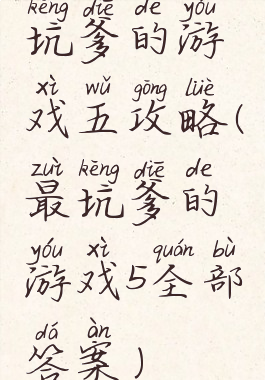 kēng diē de yóu
坑爹的游
xì wǔ gōng lüè
戏五攻略(
zuì kēng diē de
最坑爹的
yóu xì quán bù
游戏5全部
dá àn
答案)